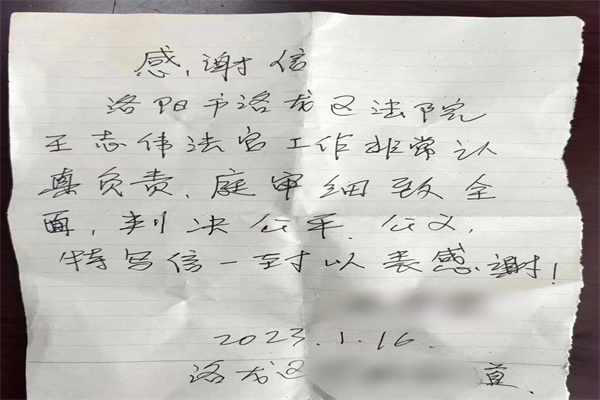 感谢信
洛阳市洛龙区法院
王志伟法官工作非常认
真负责、庭审细致全
面，判决公平、公义，
特写信一封以表感谢！
2023.1.16.
洛龙区 道